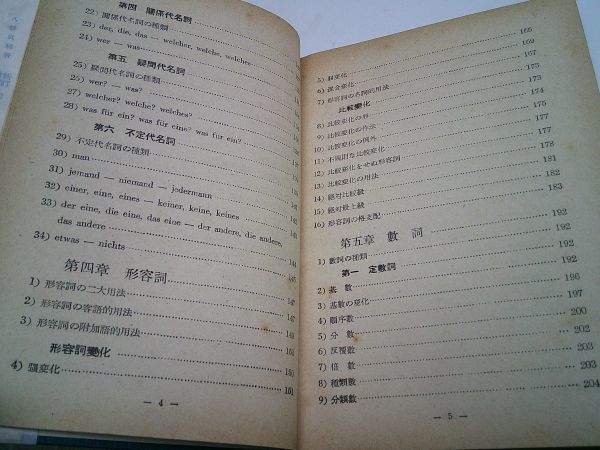 第四 關係代名詞
22) 関係代名詞の種類
23) der, die, das — welcher, welche, welches
24) wer — was
第五 疑問代名詞
25) 疑問代名詞の種類
26) wer? — was?
27) welcher? welche? welches?
28) was für ein? was für eine? was für ein?
第六 不定代名詞
29) 不定代名詞の種類
30) man
31) jemand — niemand — jedermann
32) einer, eine, eines — keiner, keine, keines
33) der eine, die eine, das eine — der andere, die andere,
das andere
34) etwas — nichts
第四章 形容詞 147
1) 形容詞の二大用法 147
2) 形容詞の客語的用法
3) 形容詞の附加語的用法
形容詞變化
4) 强変化 161
— 4 —
165
5) 弱変化 167
6) 混合変化 169
7) 形容詞の名詞的用法 173
比較變化 173
8) 比較変化の形 174
9) 比較変化の作法 175
10) 比較変化の例外 177
11) 不規則な比較変化 177
12) 比較変化をせぬ形容詞 178
13) 比較変化の用法 181
14) 絶対比較級 182
15) 絶対最上級 183
16) 形容詞の格支配
第五章 數詞 192
1) 數詞の種類 192
第一 定數詞 192
2) 基數 196
3) 基數の変化 197
4) 順序數 200
5) 分數 202
6) 反覆數 203
7) 倍數 203
8) 種類數 203
9) 分類數 204
— 5 —